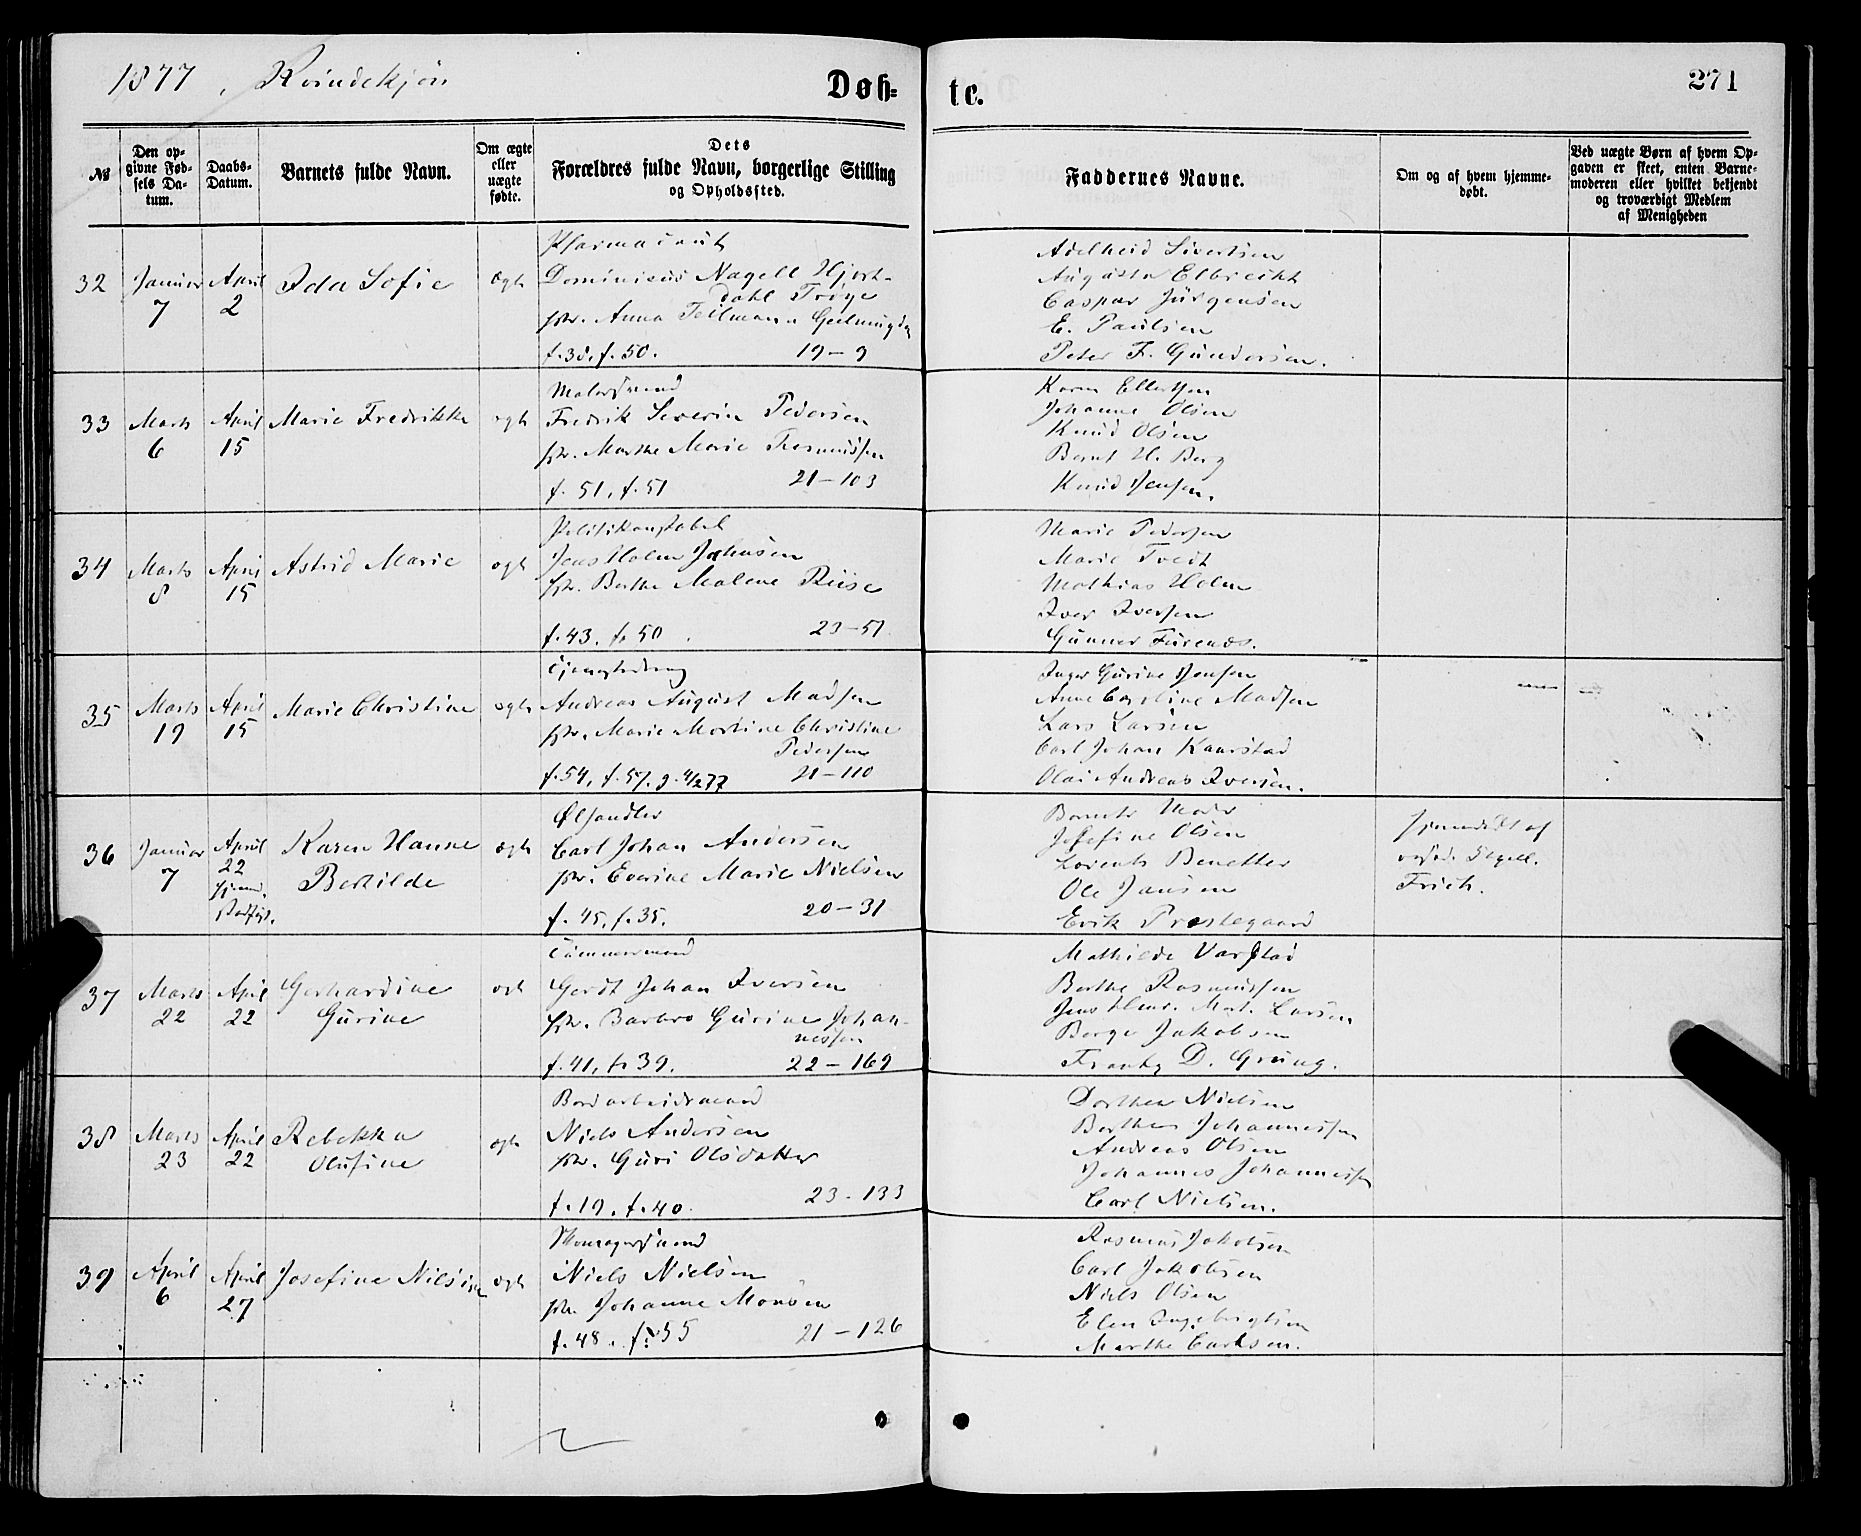 1877, Kvindekjøn
Døb-
te.
271
No
Den op-
givne Fød-
sels Da-
tum.
Daabs-
Datum.
Barnets fulde Navn.
Om ægte
eller
uægte
fødte.
Dets
Forældres fulde Navn, borgerlige Stilling
og Opholdssted.
Faddernes Navne.
Om og af hvem hjemme-
døbt.
Ved uægte Børn af hvem Op-
gaven er skeet, enten Barne-
moderen eller hvilket bekjendt
og troværdigt Medlem
af Menigheden
32
Januar
7
April
2
Ida Sofie
ægte
Pharmaceut
Dominicus Nagell Hjort-
dahl Trøye
Anna Teilman
f. 38, f. 50. 19-9
Adelheid Sivertsen
Augusta Elbrecht
Caspar Jürgensen
E. Paulsen
Peter F. Gundersen.
33
Marts
6
April
15
Marie Fredrikke
ægte
Malersvend
Fredrik Severin Pedersen
Marthe Marie Rasmussen
f. 51, f. 51 21-103
Karen Ellertsen
Johanne Olsen
Knud Olsen
Bernt H. Berg
Knud Jensen.
34
Marts
8
April
15
Astrid Marie
ægte
Politikonstabel
Jens Holm Johnsen
Berthe Malene Riise
f. 43. f. 50. 23-51
Marie Pedersen
Marie Tvedt
Mathias Holm
Iver Iversen
Gunner Furenæs.
35
Marts
19
April
15
Marie Christine
ægte
Andreas August Madsen
Marie Martine Christine
Pedersen
f. 54, f. 57. g. 4/2 77 21-110
Inger Gurine Jensen
Anne Caroline Madsen
Lars Larsen
Carl Johan Kaarstad
Olai Andreas Iversen.
36
Januar
7
April
22
Karen Hanne
Bertilde
ægte
Ølhandler
Carl Johan Andersen
Everine Marie Nielsen
f. 45, f. 35. 20-31
Barnets Moder
Josefine Olsen
Lorents Benetter
Ole Jansen
Erik Prestegaard
hjemmedøbt af
Frich.
37
Marts
22
April
22
Gerhardine
Gurine
ægte
Tømmermand
Gerdt Johan Iversen
Barbro Gurine Johan-
nessen
f. 41, f. 39. 22-169
Mathilde Varstad
Berthe Rasmussen
Jens Henr. Mart. Larsen
Børge Jakobsen
Frantz D. Grung.
38
Marts
23
April
22
Rebekka
Olufine
ægte
Bordarbeidsmand
Niels Andersen
Guri Olsdatter
f. 19. f. 40. 23-133
Dorthea Nielsen
Berthea Johannessen
Andreas Olsen
Johannes Johannessen
Carl Nielsen.
39
April
6
April
27
Josefine Nilsine
ægte
Skomagersvend
Niels Nielsen
Johanne Monsen
f. 48. f. 55 21-126
Rasmus Jakobsen
Carl Jakobsen
Niels Olsen
Elen Ingebrigtsen
Marthe Carlsen.